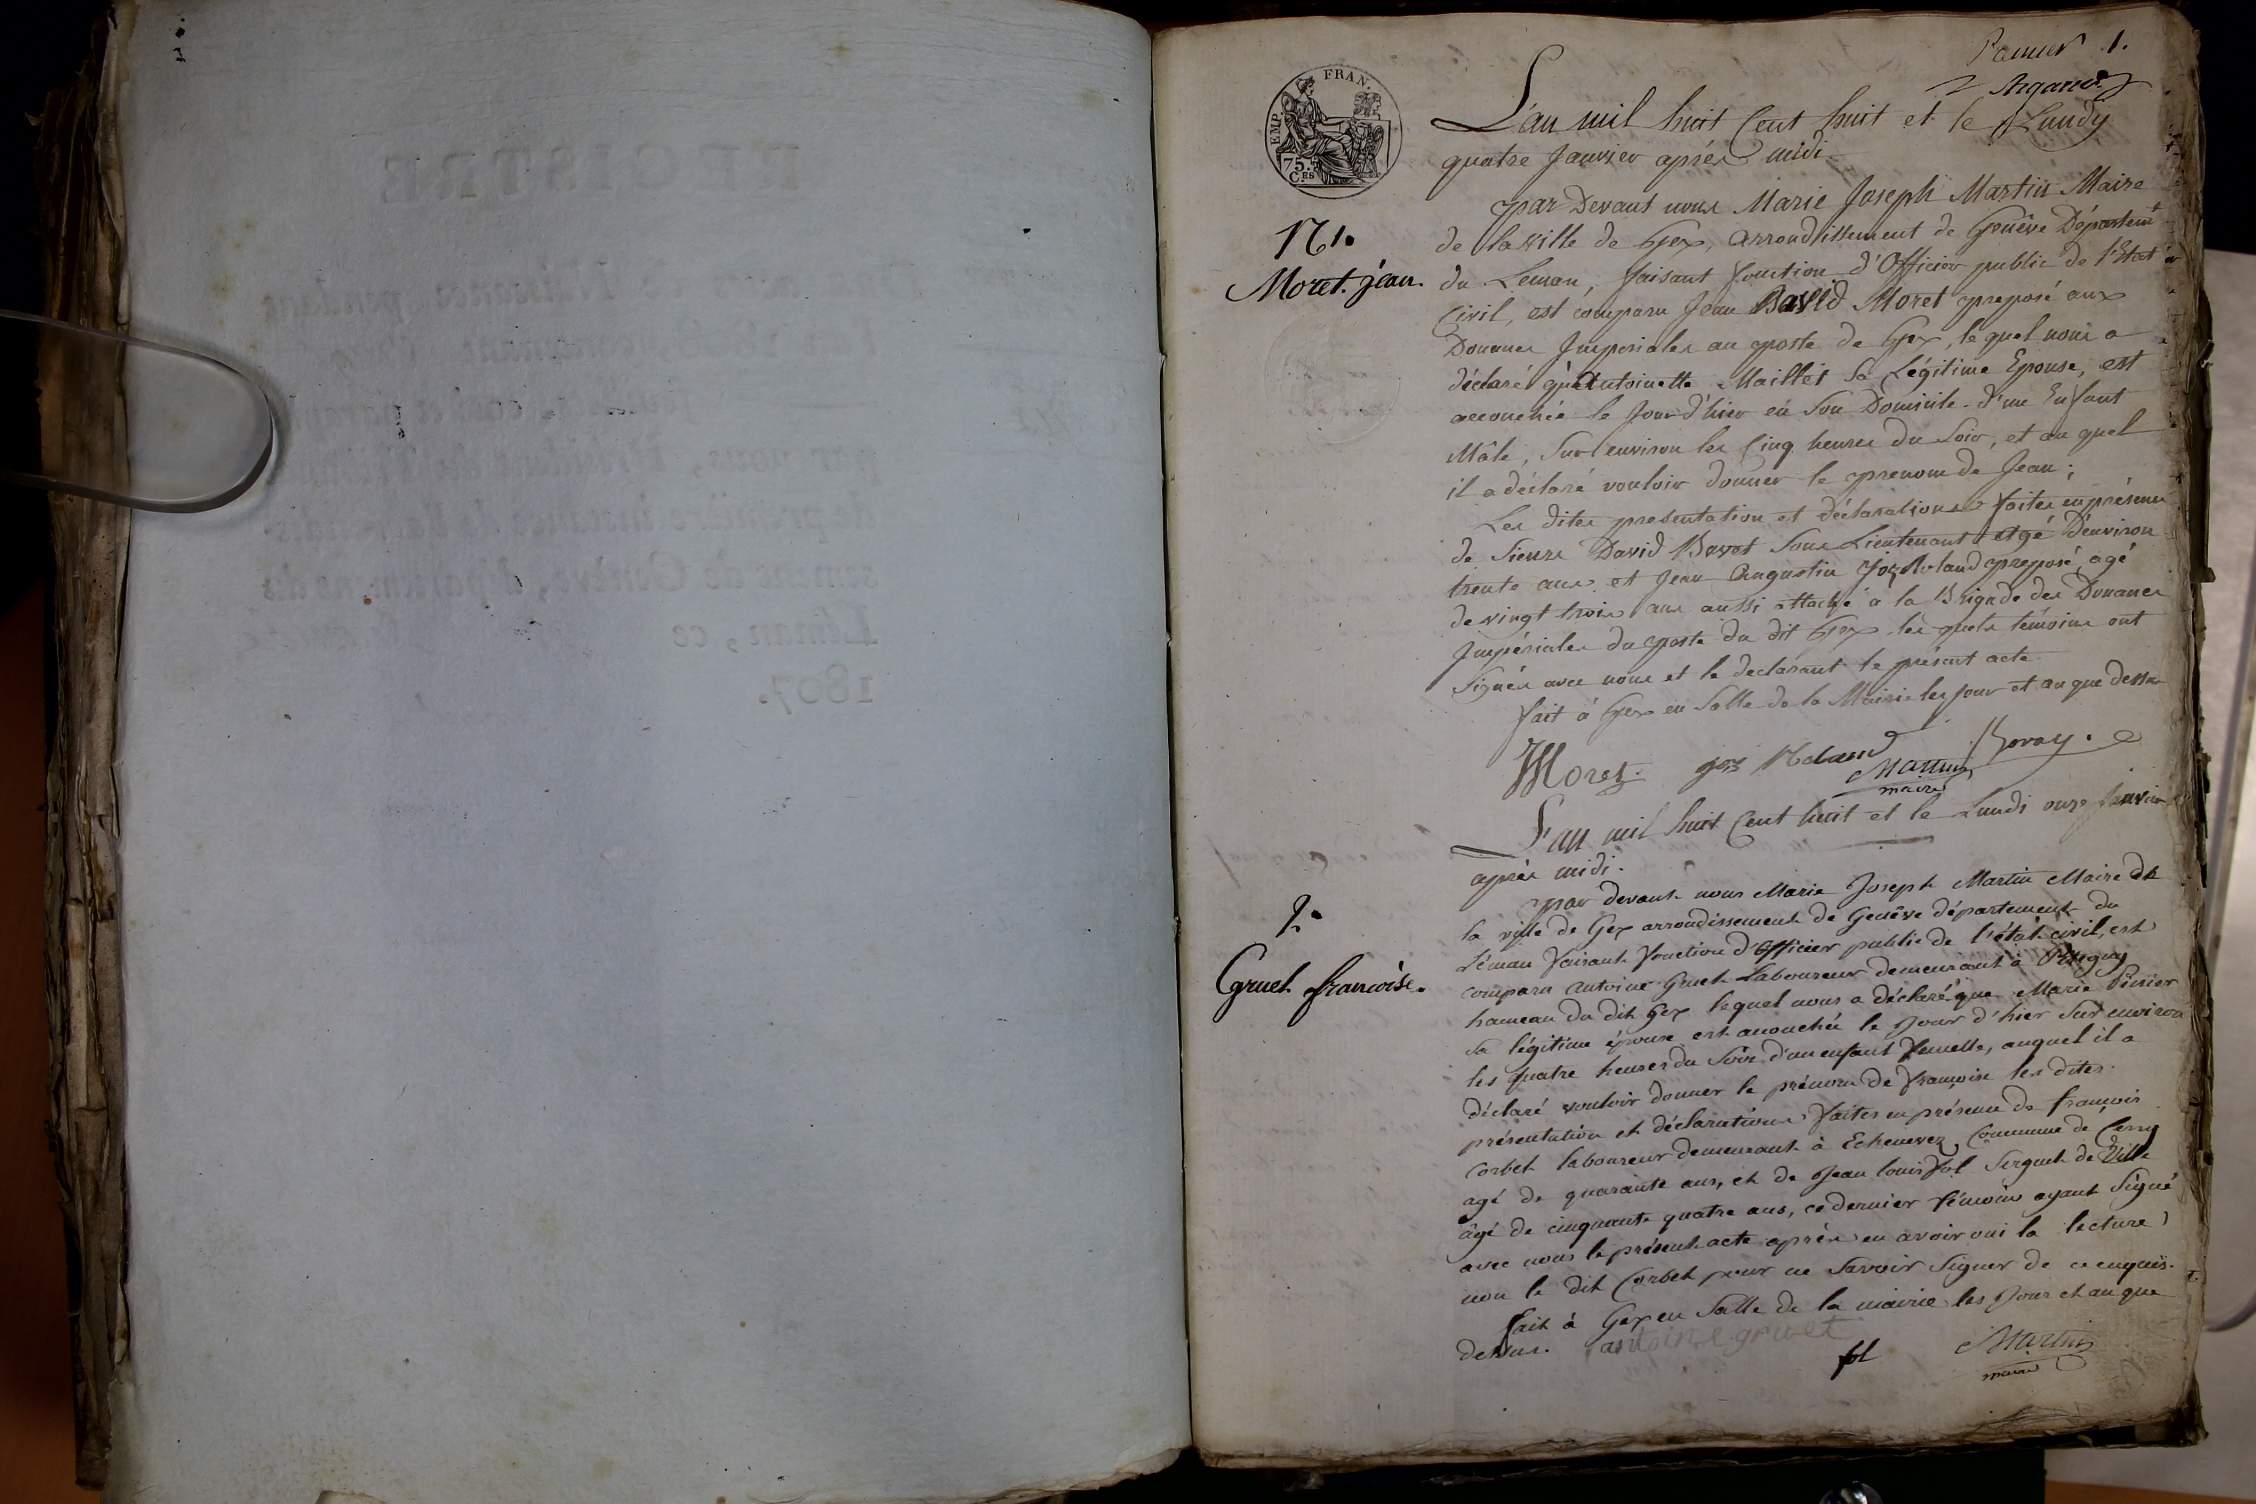 1.
EMP. FRAN.
75.
C.ES
L'an mil huit Cent huit et le Lundy
quatre Janvier après midi
N 1.
Moret. jean.
par Devant nous Marie Joseph Martin Maire
de la ville de Gex, arrondissement de Genève Département
du Leman, faisant fonction d'Officier public de l'Etat
Civil, est comparu Jean David Moret preposé aux
Douanes Imperiales au poste de Gex, lequel nous a
déclaré qu'Antoinette Maillet sa Légitime Epouse, est
accouchée le Jour d'hier en son Domicile d'un Enfant
Mâle, sur environ les Cinq heures du Soir, et au quel
il a déclaré vouloir donner le prenom de Jean;
Les dites presentation et déclarations faites en présence
de Sieurs David Sous Lieutenant agé d'environ
trente ans et Jean Augustin Joz Roland preposé, agé
de vingt trois ans aussi attaché a la Brigade des Douanes
Impériales du poste du dit Gex les quels témoins ont
Signés avec nous et le declarant le présent acte
fait à Gex en Salle de la Mairie les jour et an que dessus
Moret. joz Roland
Martin
maire
L'an mil huit Cent huit et le Lundi onze Janvier
après midi.
2.
Gruet françoise.
par devant nous Marie Joseph Martin Maire de
la ville de Gex arrondissement de Genève département du
Léman faisant fonction d'Officier public de l'état civil, est
comparu Antoine Gruet Laboureur demeurant à
hameau du dit Gex lequel nous a déclaré que Marie
sa légitime épouse est accouchée le Jour d'hier Sur environ
les quatre heures du Soir d'un enfant femelle, auquel il a
déclaré vouloir donner le prénom de françoise les dites
présentation et déclarations faites en présence de françois
Corbet laboureur demeurant à Echenevez, Commune de Cessy
agé de quarante ans, et de Jean louis fol Sergent de Ville
âgé de cinquante quatre ans, ce dernier témoin ayant Signé
avec nous le présent acte après en avoir oui la lecture
non le dit Corbet pour ne Savoir Signer de ce enquis.
fait à Gex en Salle de la mairie les Jour et an que
dessus. antoine gruet
fol
Martin
maire